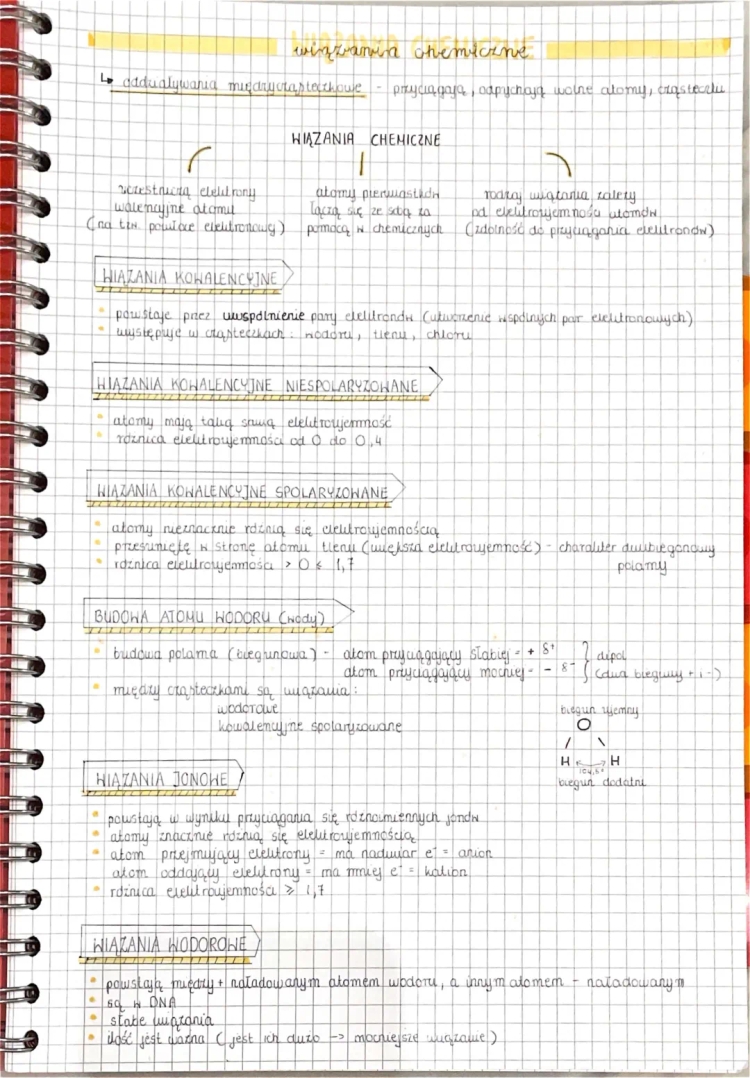 wiązania chemiczne
↳ oddziaływania międzycząsteczkowe - przyciągają, odpychają wolne atomy, cząsteczki
WIĄZANIA CHEMICZNE
uczestniczą elektrony walencyjne atomu (na tzw. powłoce elektronowej)
atomy pierwiastków łączą się ze sobą za pomocą w chemicznych
rodzaj wiązania zależy od elektroujemności atomów (zdolność do przyciągania elektronów)
WIĄZANIA KOWALENCYJNE
• powstaje przez uwspólnienie pary elektronów (utworzenie wspólnych par elektronowych)
• występuje w cząsteczkach: wodoru, tlenu, chloru
WIĄZANIA KOWALENCYJNE NIESPOLARYZOWANE
• atomy mają taką samą elektroujemność
• różnica elektroujemności od 0 do 0,4
WIĄZANIA KOWALENCYJNE SPOLARYZOWANE
• atomy nieznacznie różnią się elektroujemnością
• przesunięte w stronę atomu tlenu (większa elektroujemność) - charakter dwubiegunowy
polarny
• różnica elektroujemności > 0 ≤ 1,7
BUDOWA ATOMU WODORU (wody)
• budowa polarna (biegunowa) - atom przyciągający słabiej = + δ+ } dipol
atom przyciągający mocniej = - δ- } (dwa bieguny + i -)
• między cząsteczkami są wiązania:
wodorowe
kowalencyjne spolaryzowane
biegun ujemny
O
/ \
H ↔ H
104,5°
biegun dodatni
WIĄZANIA JONOWE
• powstają w wyniku przyciągania się różnoimiennych jonów
• atomy znacznie różnią się elektroujemnością
• atom przejmujący elektrony = ma nadmiar e⁻ = anion
atom oddający elektrony = ma mniej e⁻ = kation
• różnica elektroujemności ≥ 1,7
WIĄZANIA WODOROWE
• powstają między + naładowanym atomem wodoru, a innym atomem - naładowanym
• są w DNA
• słabe wiązania
• ilość jest ważna (jest ich dużo -> mocniejsze wiązanie)